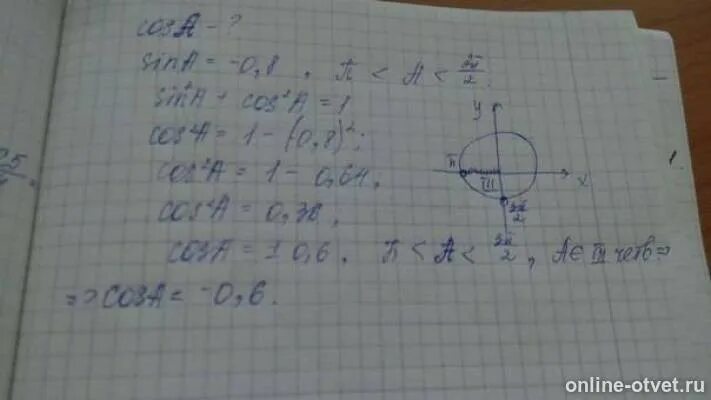 cosA - ?
sinA = -0,8, π < A < 3π/2
sin²A + cos²A = 1
cos²A = 1 - (0,8)²;
cos²A = 1 - 0,64,
cos²A = 0,36,
cosA = ± 0,6, π < A < 3π/2, A ∈ III четв =>
=> cosA = -0,6.
y
π
III
x
3π/2
1.
online-otvet.ru